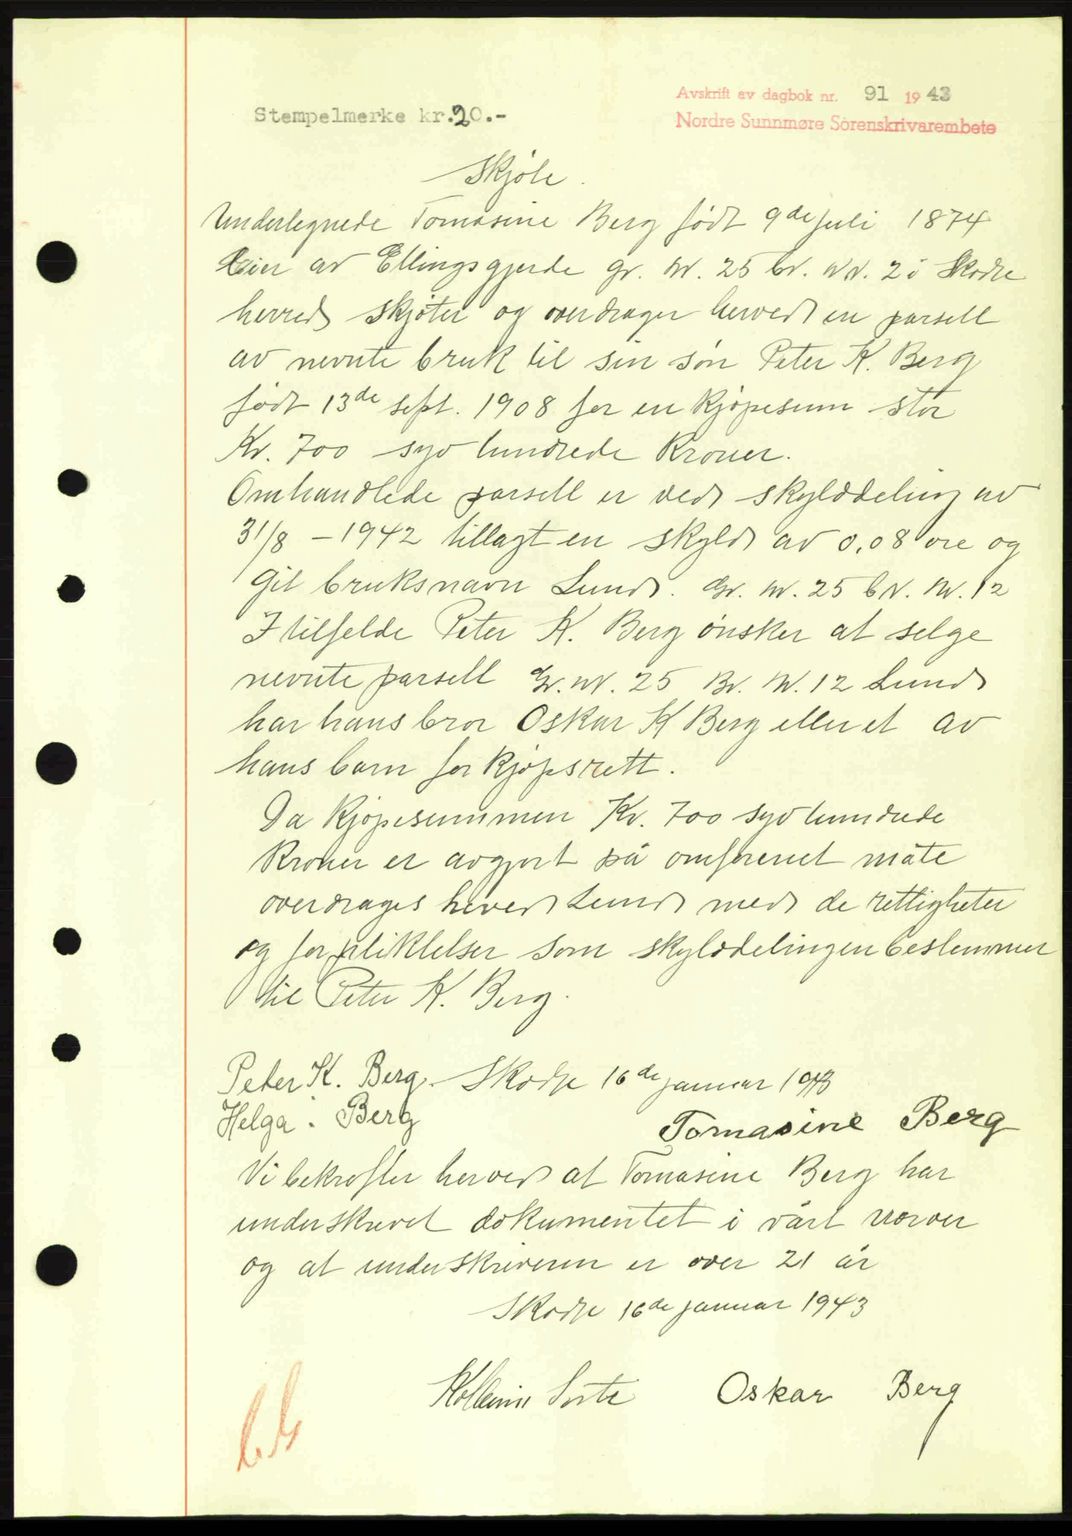 Avskrift av dagbok nr. 91 1943
Nordre Sunnmøre Sorenskrivarembete
Stempelmerke kr.20.-
Skjøte.
Underlegnede Tomasine Berg født 9de juli 1874
Eier av Ellingsgjerde gr. nr. 25 br. nr. 2 i Skodje
herred skjøter og overdrager herved en parsell
av nevnte bruk til sin søn Peter K. Berg
født 13de sept. 1908 for en kjøpesum stor
Kr. 700 syv hundrede kroner.
Omhandlede parsell er ved skylddeling av
31/8 - 1942 tillagt en skyld av 0,08 øre og
git bruksnavn Lund. Gr. nr. 25 br. nr. 12
I tilfelde Peter K. Berg ønsker at selge
nevnte parsell Gr. nr. 25 Br. nr. 12 Lund
har hans bror Oskar K Berg eller et av
hans barn forkjøpsrett.
Da kjøpesummen Kr. 700 syv hundrede
kroner er avgjort på omforenet måte
overdrages herved Lund med de rettigheter
og forpliktelser som skylddelingen bestemmer
til Peter K. Berg.
Peter K. Berg. Skodje 16de januar 1943
Helga Berg
Tomasine Berg
Vi bekrefter herved at Tomasine Berg har
underskrevet dokumentet i vårt nærver
og at underskriveren er over 21 år
Skodje 16de januar 1943
Oskar Berg